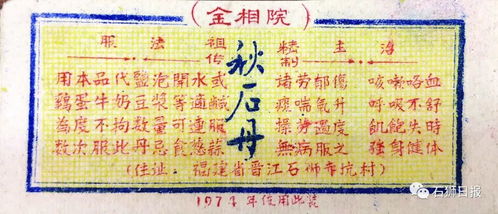 (金相院)
服法
用本品代鹽泡開水或
鷄蛋牛奶豆漿等適鹹
為度不拘数量可連服
数次服此丹忌食葱蒜
祖传
秋石丹
精制
主治
诸劳郁傷 咳嗽咯血
痰喘氣升 呼吸不舒
操劳過度 飢飽失時
無病服之 強身健体
(住址：福建省晋江石狮 坑村)
1974年使用此裝
石狮日报